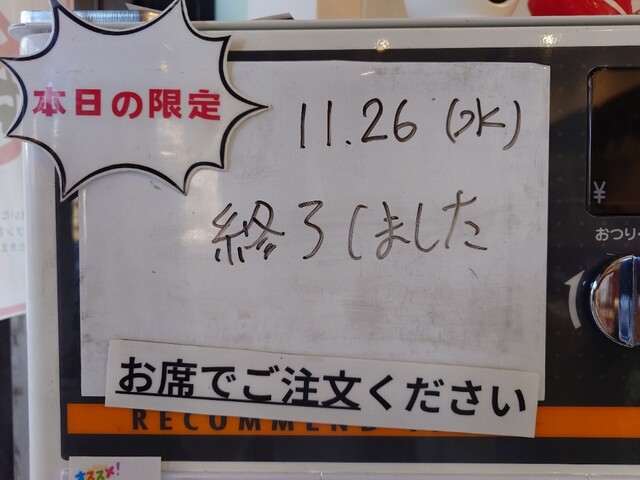 本日の限定
11.26 (水)
終了しました
¥
おつり
お席でご注文ください
RECOMMEND
オススメ!